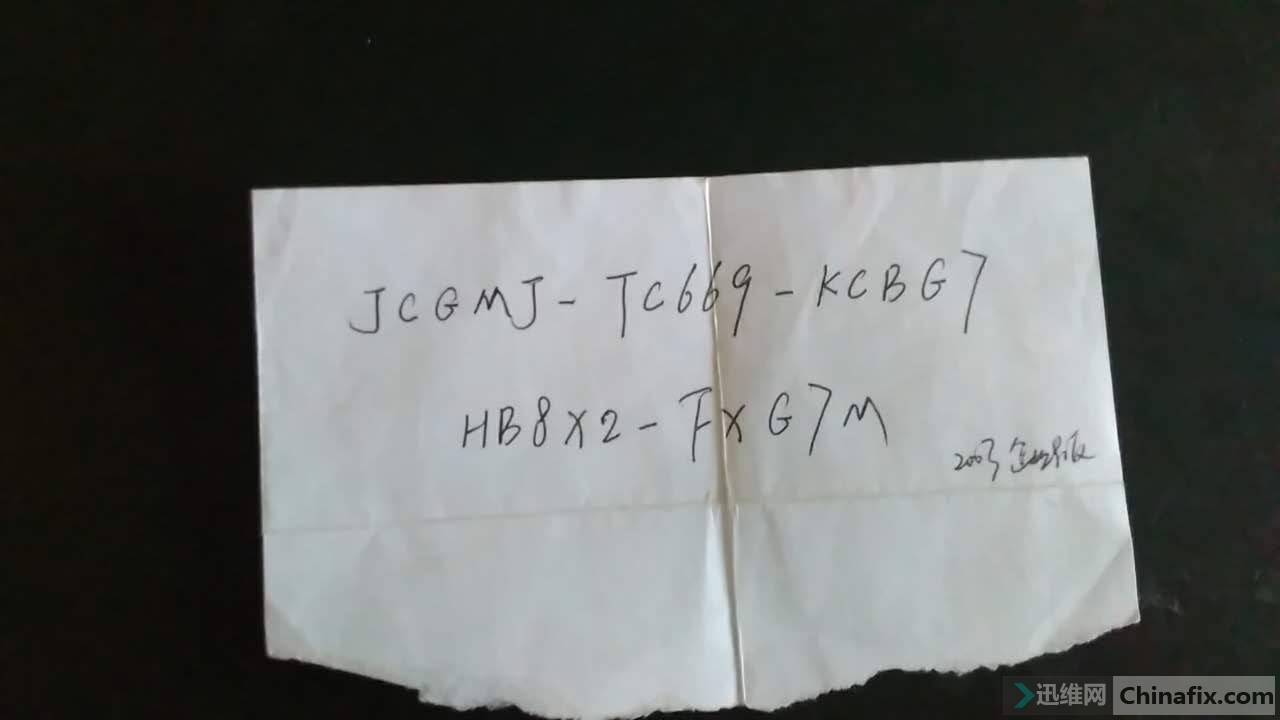 JCGMJ - TC669 - KCBG7
HB8X2 - FXG7M
2003 企业版
迅维网 Chinafix.com